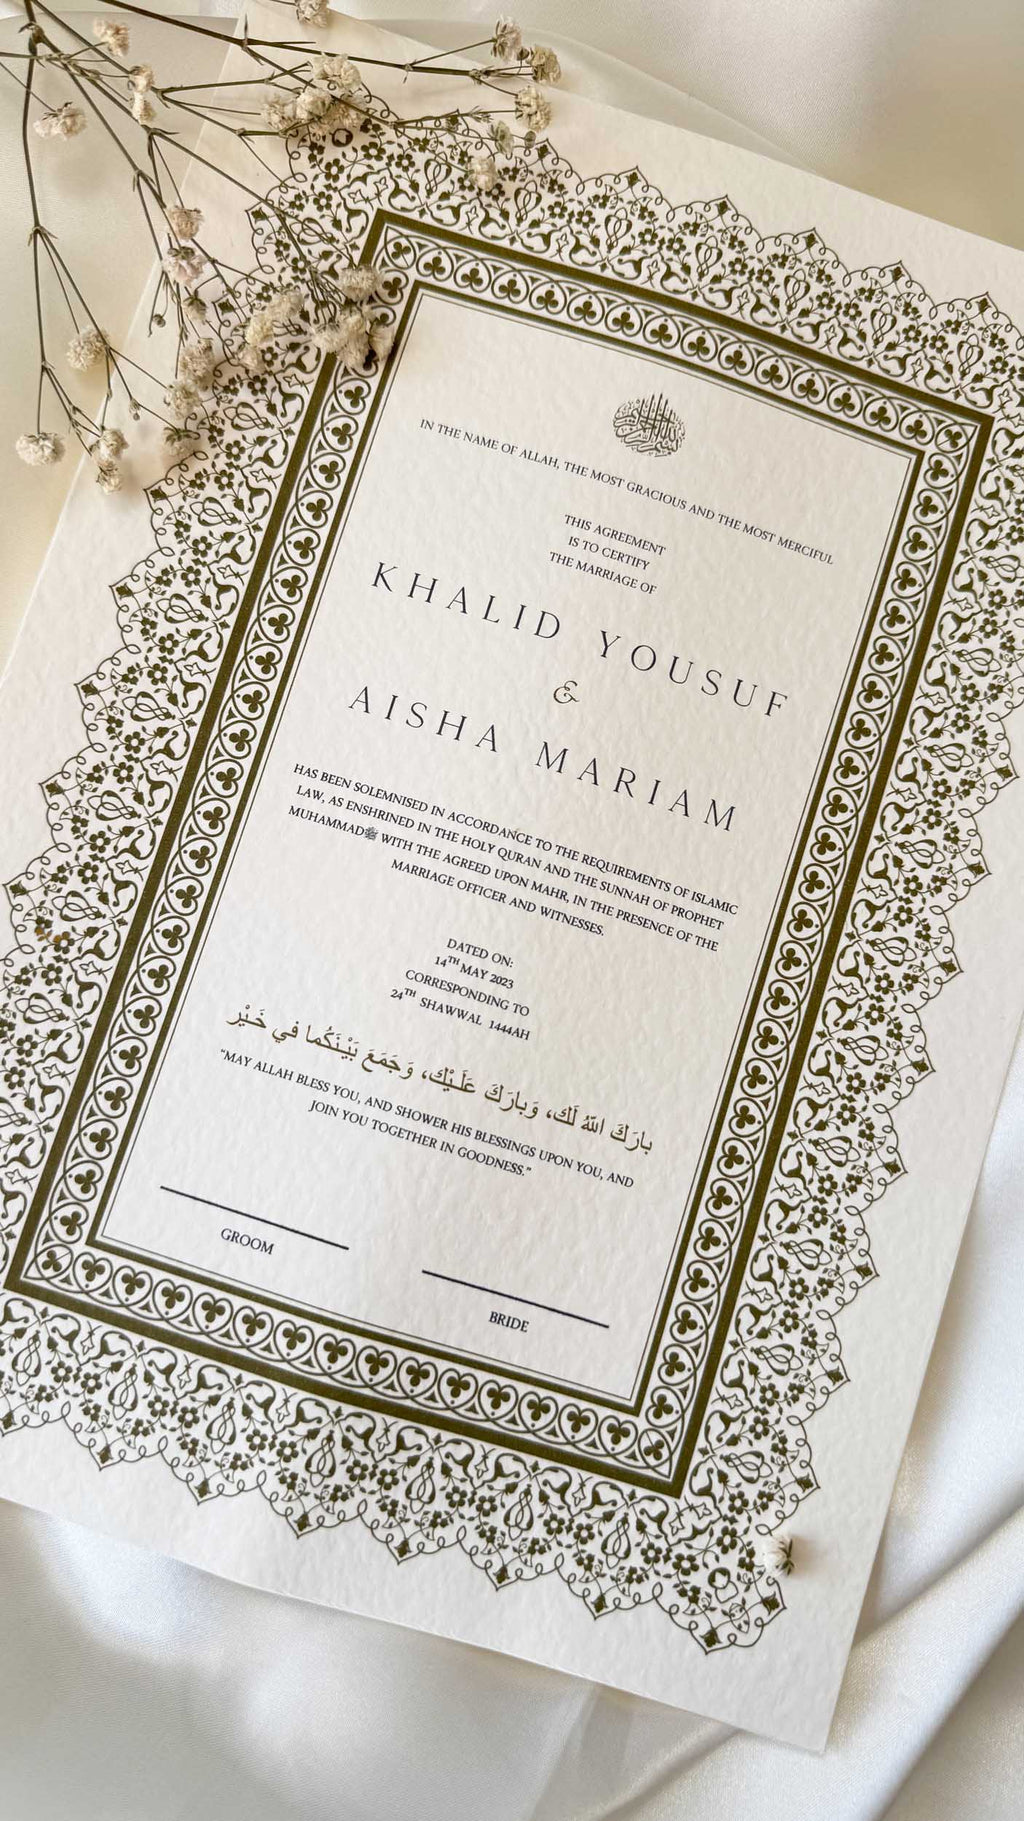 بسم الله الرحمن الرحيم
IN THE NAME OF ALLAH, THE MOST GRACIOUS AND THE MOST MERCIFUL
THIS AGREEMENT
IS TO CERTIFY
THE MARRIAGE OF
KHALID YOUSUF
&
AISHA MARIAM
HAS BEEN SOLEMNISED IN ACCORDANCE TO THE REQUIREMENTS OF ISLAMIC
LAW, AS ENSHRINED IN THE HOLY QURAN AND THE SUNNAH OF PROPHET
MUHAMMADﷺ WITH THE AGREED UPON MAHR, IN THE PRESENCE OF THE
MARRIAGE OFFICER AND WITNESSES.
DATED ON:
14TH MAY 2023
CORRESPONDING TO
24TH SHAWWAL 1444AH
بارَكَ اللهُ لَك، وَبارَكَ عَلَـيْك، وَجَمَعَ بَيْنَكُما في خَـيْر
"MAY ALLAH BLESS YOU, AND SHOWER HIS BLESSINGS UPON YOU, AND
JOIN YOU TOGETHER IN GOODNESS."
GROOM
BRIDE